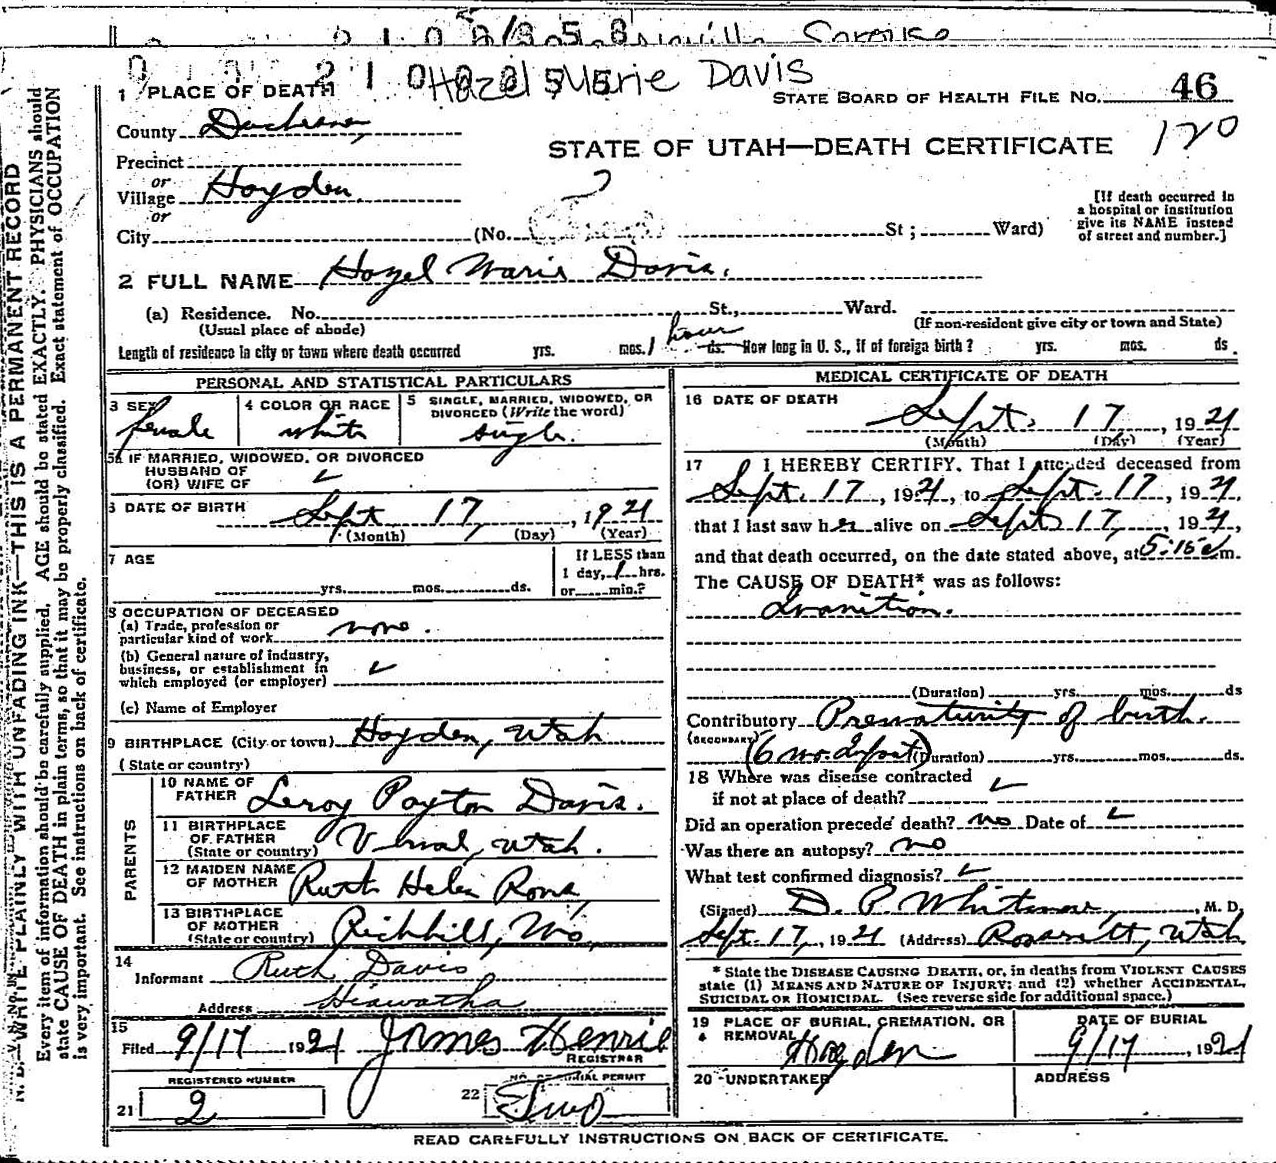 2 1 0
Hazel Marie Davis
1 PLACE OF DEATH
STATE BOARD OF HEALTH FILE No. 46
County Duchesne,
STATE OF UTAH—DEATH CERTIFICATE 120
Precinct
or
Village Hayden
or
City (No. St ; Ward)
[If death occurred in
a hospital or institution
give its NAME instead
of street and number.]
2 FULL NAME Hazel Marie Davis.
(a) Residence. No. St., Ward.
(Usual place of abode) (If non-resident give city or town and State)
Length of residence in city or town where death occurred yrs. mos. 1 hour ds. How long in U. S., if of foreign birth ? yrs. mos. ds.
PERSONAL AND STATISTICAL PARTICULARS
3 SEX female
4 COLOR OR RACE white
5 SINGLE, MARRIED, WIDOWED, OR
DIVORCED (Write the word)
single.
5a IF MARRIED, WIDOWED, OR DIVORCED
HUSBAND OF
(OR) WIFE OF
6 DATE OF BIRTH Sept 17, 1921
(Month) (Day) (Year)
7 AGE
yrs. mos. ds.
If LESS than
1 day, 1 hrs.
or min.?
8 OCCUPATION OF DECEASED
(a) Trade, profession or
particular kind of work none.
(b) General nature of industry,
business, or establishment in
which employed (or employer)
(c) Name of Employer
9 BIRTHPLACE (City or town) Hayden, Utah
(State or country)
PARENTS
10 NAME OF
FATHER Leroy Payton Davis.
11 BIRTHPLACE
OF FATHER
(State or country) Vernal, Utah.
12 MAIDEN NAME
OF MOTHER Ruth Helen
13 BIRTHPLACE
OF MOTHER
(State or country) Richhill, Mo,
14
Informant Ruth Davis
Address Hiawatha
15
Filed 9/17 1921 James Henrie
REGISTRAR
REGISTERED NUMBER
21 2
22 Two
MEDICAL CERTIFICATE OF DEATH
16 DATE OF DEATH
Sept. 17, 1921
(Month) (Day) (Year)
17 I HEREBY CERTIFY, That I attended deceased from
Sept. 17, 1921, to Sept. 17, 1921,
that I last saw her alive on Sept 17, 1921,
and that death occurred, on the date stated above, at 5:15 a m.
The CAUSE OF DEATH* was as follows:
Inanition.
(Duration) yrs. mos. ds
Contributory Prematurity of birth.
(SECONDARY) (6 mo. infant) (Duration) yrs. mos. ds.
18 Where was disease contracted
if not at place of death?
Did an operation precede death? no Date of
Was there an autopsy? no
What test confirmed diagnosis?
(Signed) D. P. Whitmore, M. D.
Sept 17, 1921 (Address) Roosevelt, Utah
* State the DISEASE CAUSING DEATH, or, in deaths from VIOLENT CAUSES
state (1) MEANS AND NATURE OF INJURY; and (2) whether ACCIDENTAL,
SUICIDAL OR HOMICIDAL. (See reverse side for additional space.)
19 PLACE OF BURIAL, CREMATION, OR
REMOVAL Hayden
DATE OF BURIAL
9/17, 1921
20 UNDERTAKER
ADDRESS
READ CAREFULLY INSTRUCTIONS ON BACK OF CERTIFICATE.
WRITE PLAINLY WITH UNFADING INK—THIS IS A PERMANENT RECORD
Every item of information should be carefully supplied. AGE should be stated EXACTLY. PHYSICIANS should
state CAUSE OF DEATH in plain terms, so that it may be properly classified. Exact statement of OCCUPATION
is very important. See instructions on back of certificate.